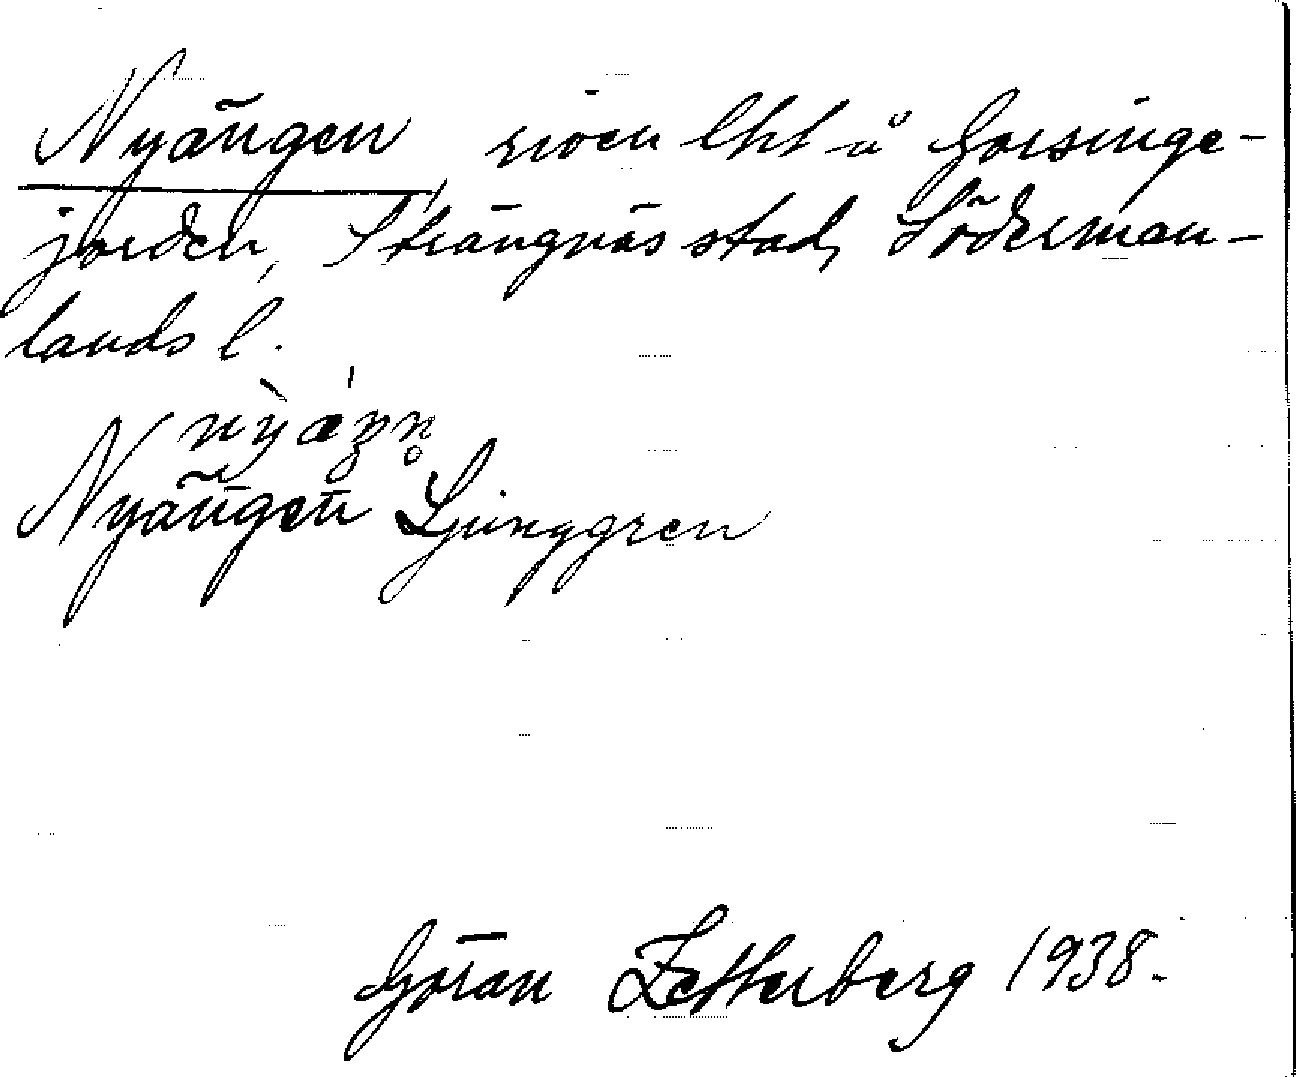 Nyängen, riven lht å Gorsinge-
jorden, Strängnäs stad, Söderman-
lands l.
nỳǽŋn̥
Nyängen Ljunggren
Göran Zetterberg 1938.